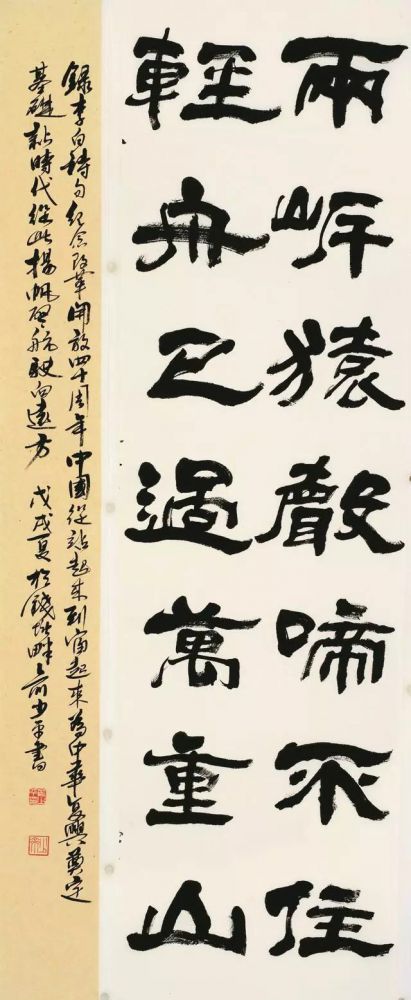 兩岸猿聲啼不住
輕舟已過萬重山
錄李白詩句紀念改革開放四十周年中國從站起來到富起來為中華復興奠定
基礎新時代從此揚帆啟航駛向遠方 戊戌夏於錢塘畔 少平書